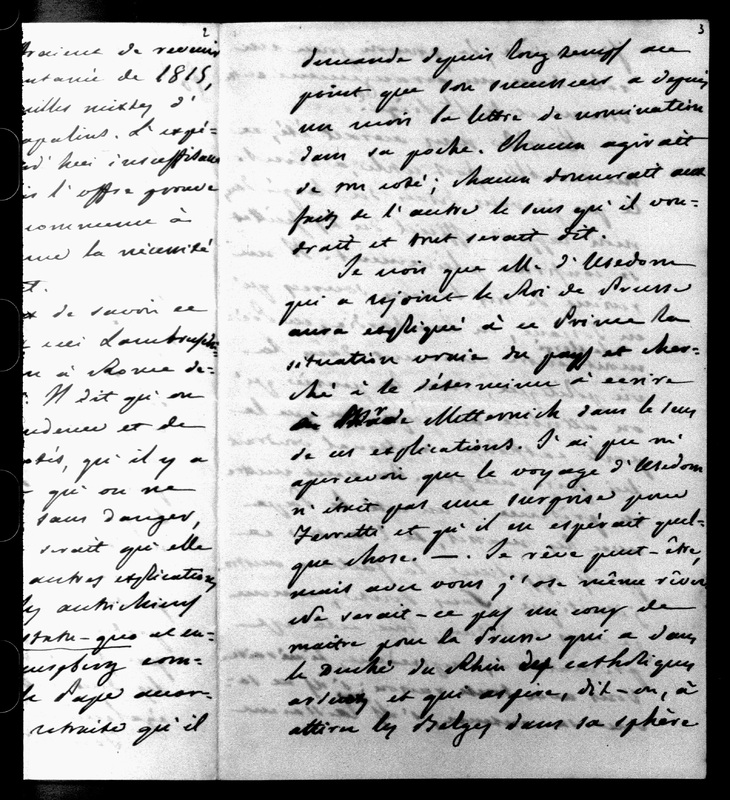 2
traient de revenir
entanée de 1815,
nilles mixtes d'
apatins. L'expé-
d'hui insuffisan
is l'offre prouve
commence à
me la nécessité
t.
de savoir ce
ici Lambrusch-
n à Rome de-
Il dit qu'on
udence et de
ités, qu'il y a
qu'on ne
sans danger,
serait qu'elle
autres explications
les autrichiens
statu-quo et en-
uspberg com-
le Pape accor-
retraite qu'il
3
demande depuis long temps au
point que son successeur a depuis
un mois la lettre de nomination
dans sa poche. Chacun agirait
de son coté; chacun donnerait aux
faits de l'autre le sens qu'il vou-
drait et tout serait dit.
Je vois que M. d'Usedom
qui a rejoint le Roi de Prusse
aura expliqué à ce Prince la
situation vraie du pays et cher-
ché à le déterminer à ecrire
à Mr de Metternich dans le sens
de ces explications. J'ai pu m'
apercevoir que le voyage d'Usedom
n'était pas une surprise pour
Ferretti et qu'il en espérait quel-
que chose. —. Je rêve peut-être,
mais avec vous j'ose même rêver.
Ne serait-ce pas un coup de
maitre pour la Prusse qui a dans
le Duché du Rhin des catholiques
et qui aspire, dit-on, à
attirer les Belges dans sa sphère